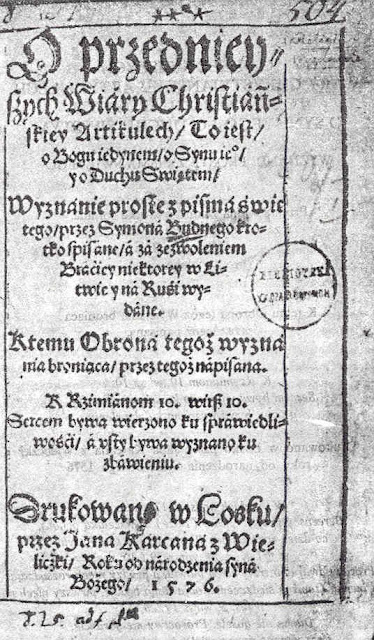 504
O przedniey⸗
ſzych Wiáry Chriſtiáń⸗
ſkiey Artikulech/ To ieſt/
o Bogu iedynem/ o Synu ie°/
y o Duchu Swiętem/
Wyznánie proſte z piſmá świę
tego/ przez Symoná Budnego kro⸗
tko ſpiſane/ á zá zezwoleniem
Bráciey niektorey w Li⸗
twie y ná Ruśi wy⸗
dáne.
K temu Obroná tegoż wyzna
nia broniąca/ przez tegoż nápiſana.
K Rzimiánom 10. wirß 10.
Sercem bywa wierzono ku ſpráwiedli⸗
wośći/ á vſty bywa wyznano ku
zbáwieniu.
Drukowano w Loſku/
przez Jana Karcaná z Wie⸗
liczki/ Roku od národzenia ſyná
Bożego/ 1576.